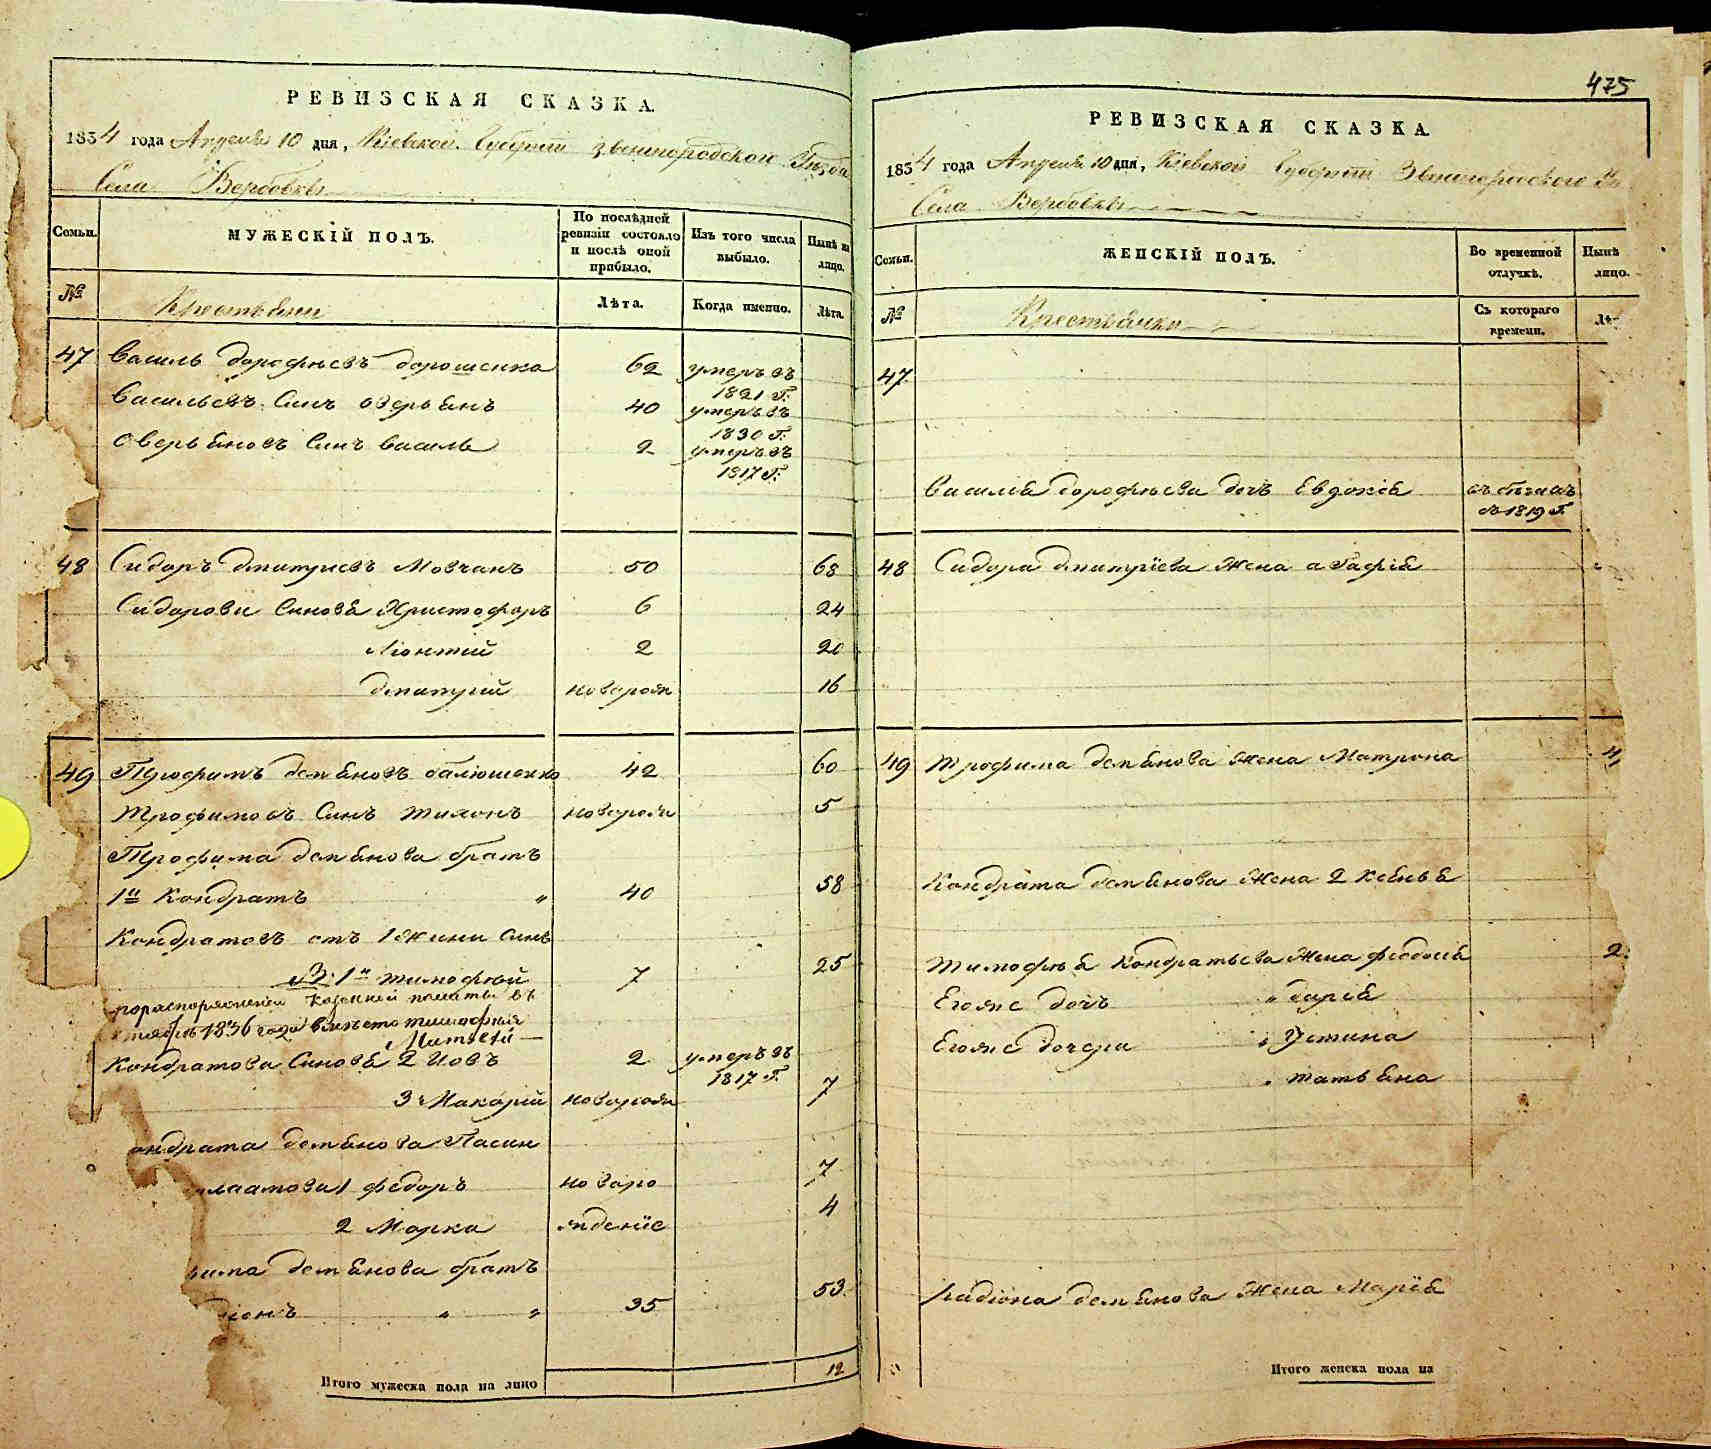 РЕВИЗСКАЯ СКАЗКА.
1834 года Апреля 10 дня, Кіевской Губерніи Звенигородского Уѣзда
Села Вербовки
Семьи.
МУЖЕСКІЙ ПОЛЪ.
По послѣдней ревизіи состояло и послѣ оной прибыло.
Изъ того числа выбыло.
Нынѣ на лицо.
№
Крестьяни
Лѣта.
Когда именно.
Лѣта.
47 Василь Дорофѣевъ Дорошенко 62 умеръ въ 1821 г:
Васильевъ Синъ оверьянъ 40 умеръ въ 1830 г:
Оверьяновъ Синъ Василь 2 умеръ въ 1817 г:
48 Сидоръ Дмитриевъ Мовчанъ 50 68
Сидорови Синовья Христофоръ 6 24
Лионтий 2 20
Дмитрийноворож 16
49 Трофимъ Демьяновъ балюшенко 42 60
Трофимовъ Синъ Тихонъ новорож 5
Трофима Демьянова братъ
1й Кондратъ " 40 58
Кондратовъ отъ 1 жини Синъ
1й Тимофѣй 7 25
по распоряжению Казенной палаты въ
1836 года вместо тимофея
Матвей
Кондратова Синовья 2 Иовъ 2 умеръ въ 1817 г.
3 Макарий новорож 7
ондрата Демьянова Пасин
1 федоръ новоро 7
2 Марко жденіе 4
има Демьянова братъ
діонъ " " 35 53
Итого мужеска пола на лицо 12
475
РЕВИЗСКАЯ СКАЗКА.
1834 года Апреля 10 дня, Кіевской Губерніи Звенигородского
Села Вербовки
Семьи.
ЖЕНСКІЙ ПОЛЪ.
Во временной отлучкѣ.
Нынѣ лицо.
№
Крестьянки
Съ котораго времени.
47.
Василия Дорофѣева дочь Евдокия въ бѣгахъ съ 1819 г.
48 Сидора Дмитріева жена агафія
49 Трофима Демьянова жена Матрона 4
Кондрата Демьянова жена 2 ксенья
Тимофѣя Кондратьева жена феодосья 2
Егоже дочь " дарья
Егоже дочери " Устина
" татьяна
Радіона Демьянова жена Марія
Итого женска пола на